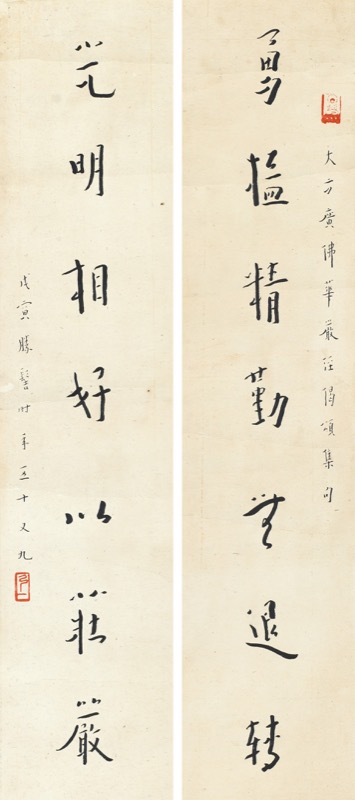 大方廣佛華嚴經偈頌集句
勇猛精勤無退轉
光明相好以莊嚴
戊寅勝髻時年五十又九